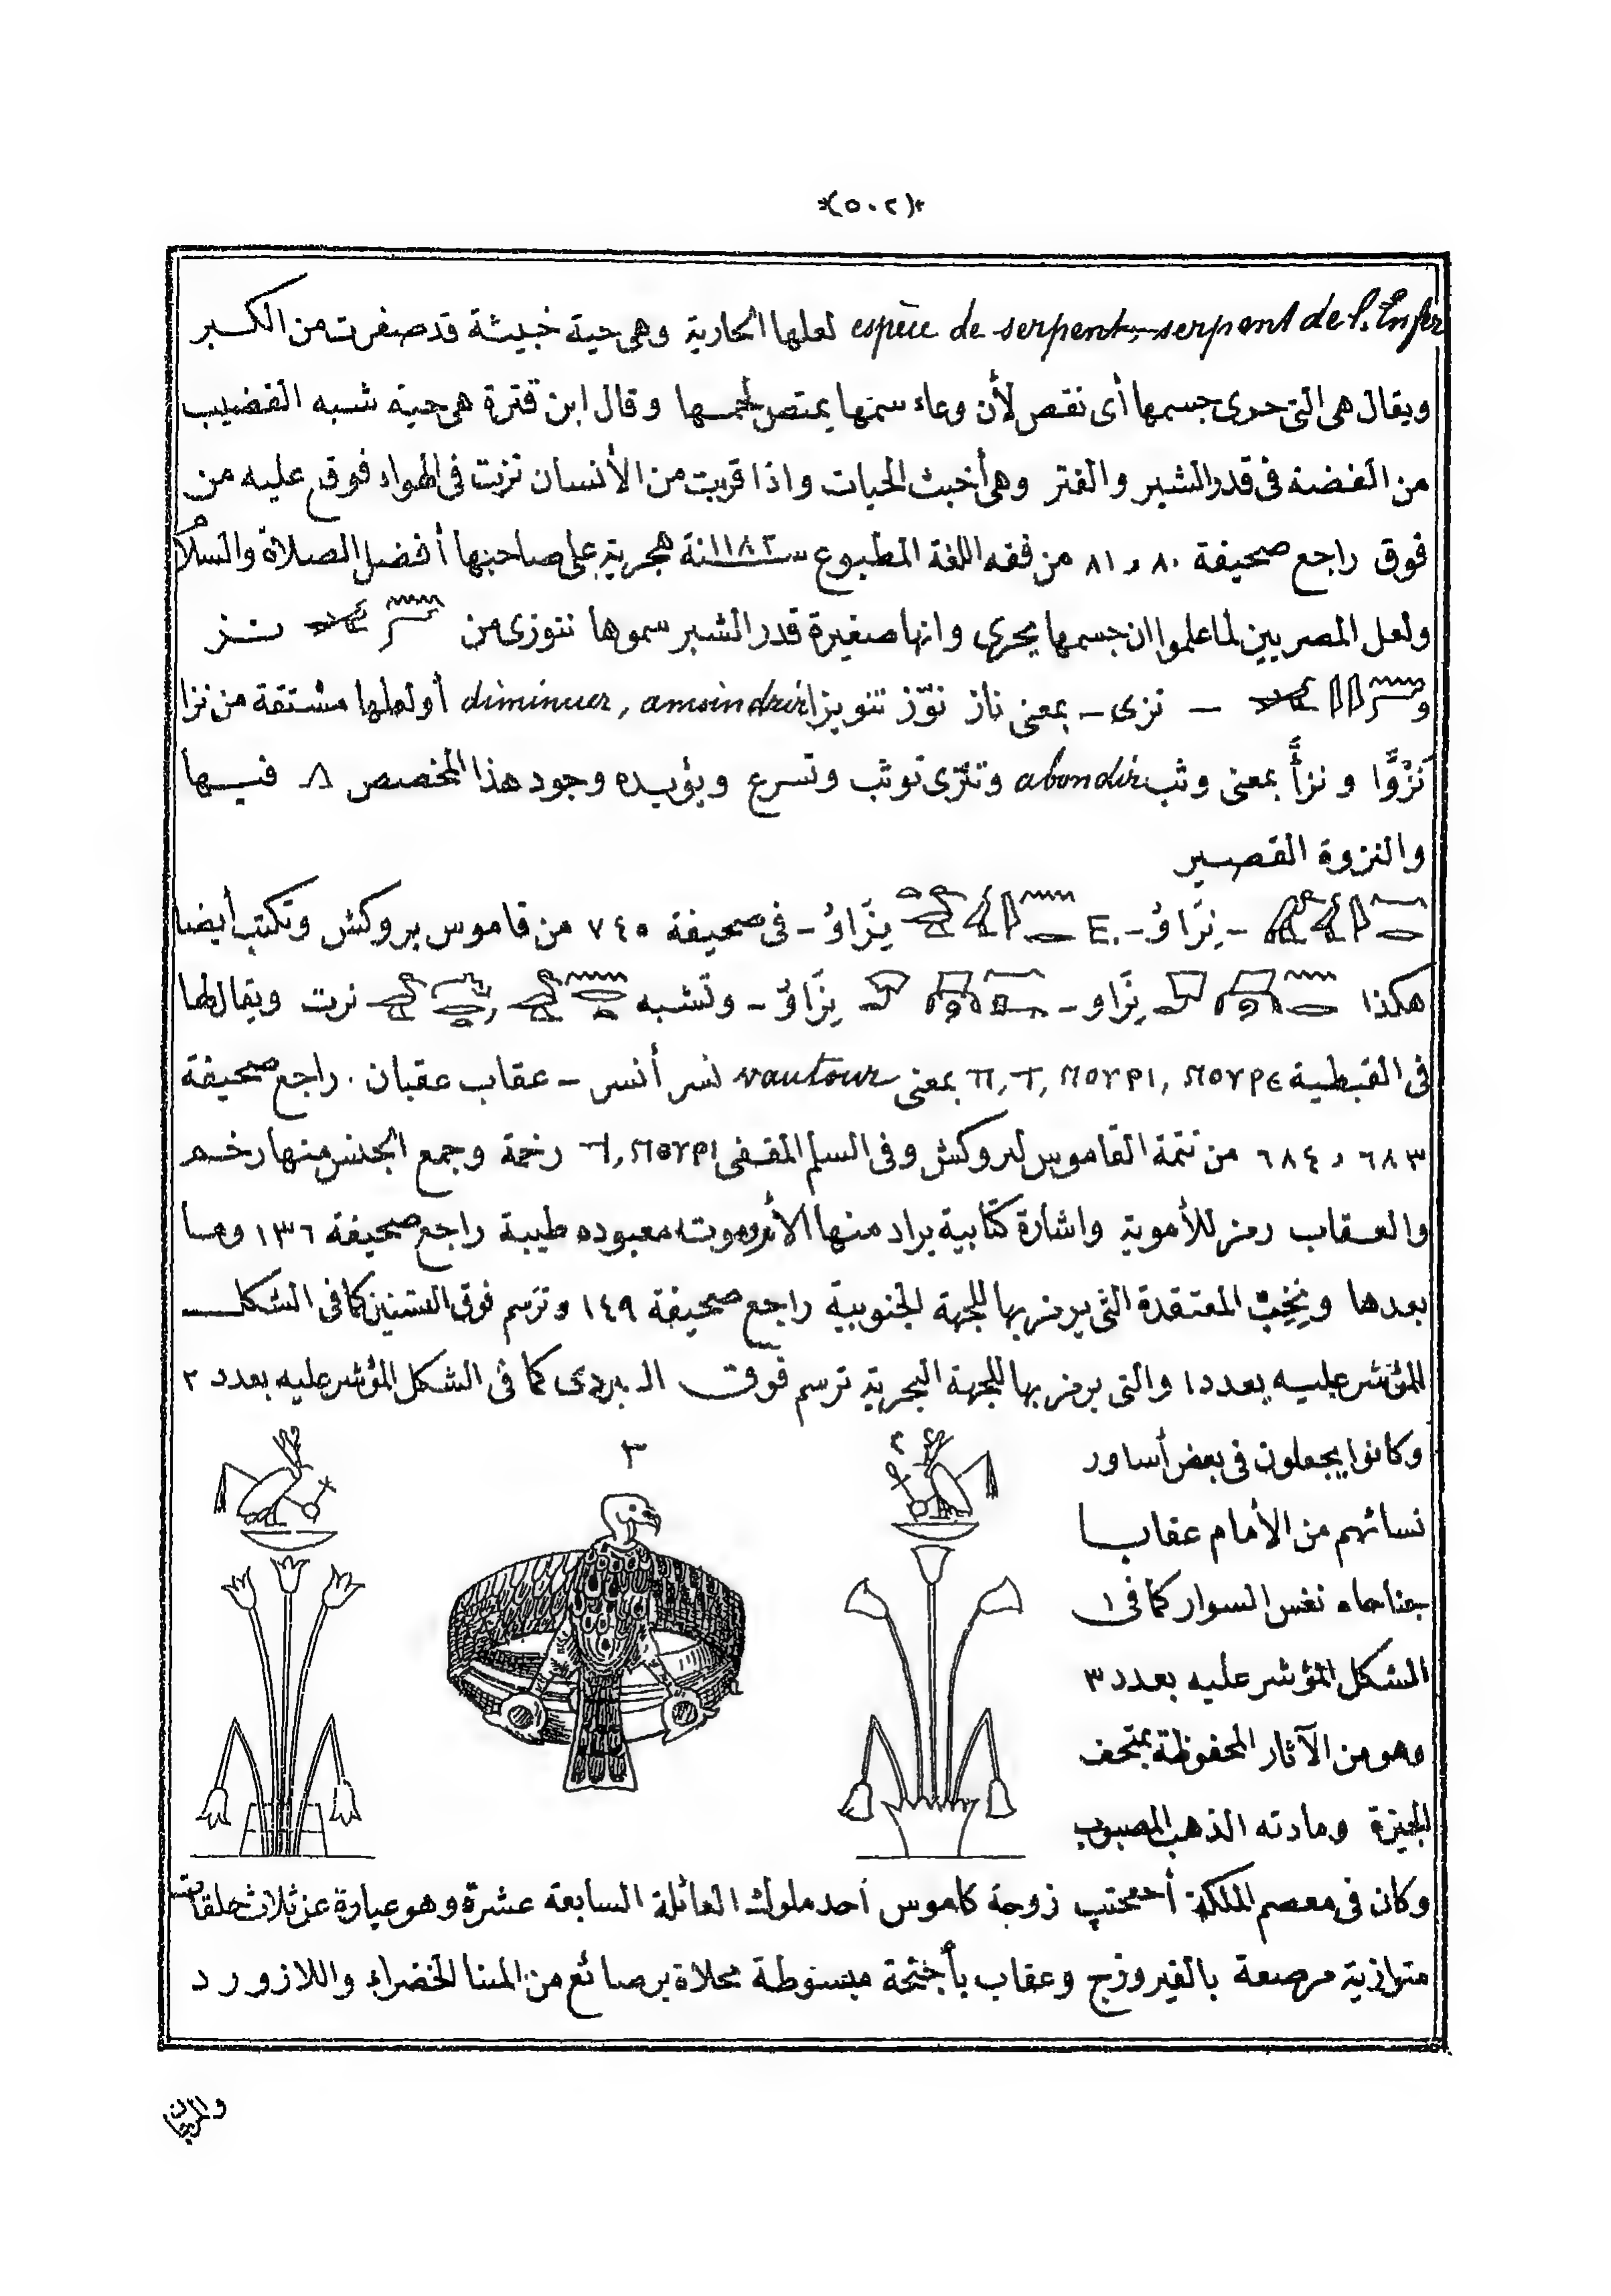 *(٥٠٢)*
espèce de serpent, serpent de l'Enfer لعلها الحارية وهى حية خبيثة قد صغرت من الكبر
ويقال هى التى حرى جسمها أى نقص لأن وعاء سمها يمتص لحمها وقال ابن قترة هى حية شبه القضيب
من الفضة فى قدر الشبر والفتر وهى أخبث الحيات واذا قربت من الأنسان نزت فى الهواء فوقع عليه من
فوق راجع صحيفة ٨٠ و ٨١ من فقه اللغة المطبوع سنة ١١٨٢ هجرية على صاحبها أفضل الصلاة والسلام
ولعل المصريين لما علموا ان جسمها يحرى وانها صغيرة قدر الشبر سموها نتوزى من نز
و — نزى — بمعنى ناز نوّز تنويزا diminuer, amoindrir أو لعلها مشتقة من نزا
نَزْوًا و نزأً بمعنى وثب abondir وتنزّى توثب وتسرع ويؤيده وجود هذا المخصص فيها
والنزوة القصير
- نِرَاوُ - E. نِرَاوُ - فى صحيفة ٧٤٥ من قاموس بروكش وتكتب أيضا
هكذا نِرَاو - نِرَاوُ - وتشبه نرت ويقال لها
فى القبطية ⲡ, ⲧ, ⲛⲟⲩⲣⲓ, ⲛⲟⲩⲣⲉ بمعنى vautour نسر أنسر - عقاب عقبان. راجع صحيفة
٦٨٣ و ٦٨٤ من تتمة القاموس لبروكش وفى السلم المقفى ϯ, ⲛⲟⲩⲣⲓ رخمة وجمع الجنس منها رخم
والعقاب رمز للأموية واشارة كتابية يراد منها الأم وموت معبوده طيبة راجع صحيفة ١٣٦ وما
بعدها ونِخِبْ المعتقدة التى يرمز بها للجهة الجنوبية راجع صحيفة ١٤٩ وترسم فوق البشنين كما فى الشكل
المؤشر عليه بعدد ١ والتى يرمز بها للجهة البحرية ترسم فوق البردى كما فى الشكل المؤشر عليه بعدد ٢
وكانوا يجعلون فى بعض أساور
نسائهم من الأمام عقابا
جناحاه نفس السوار كما فى
الشكل المؤشر عليه بعدد ٣
وهو من الآثار المحفوظة بمتحف
الجيزة ومادته الذهب المصبوب
١
٣
٢
وكان فى معصم الملكة أححتب زوجة كاموس أحد ملوك العائلة السابعة عشرة وهو عبارة عن ثلاث حلقات
متوازية مرصعة بالفيروزج وعقاب بأجنحة مبسوطة محلاة برصائع من المينا الخضراء واللازورد
والمرجان